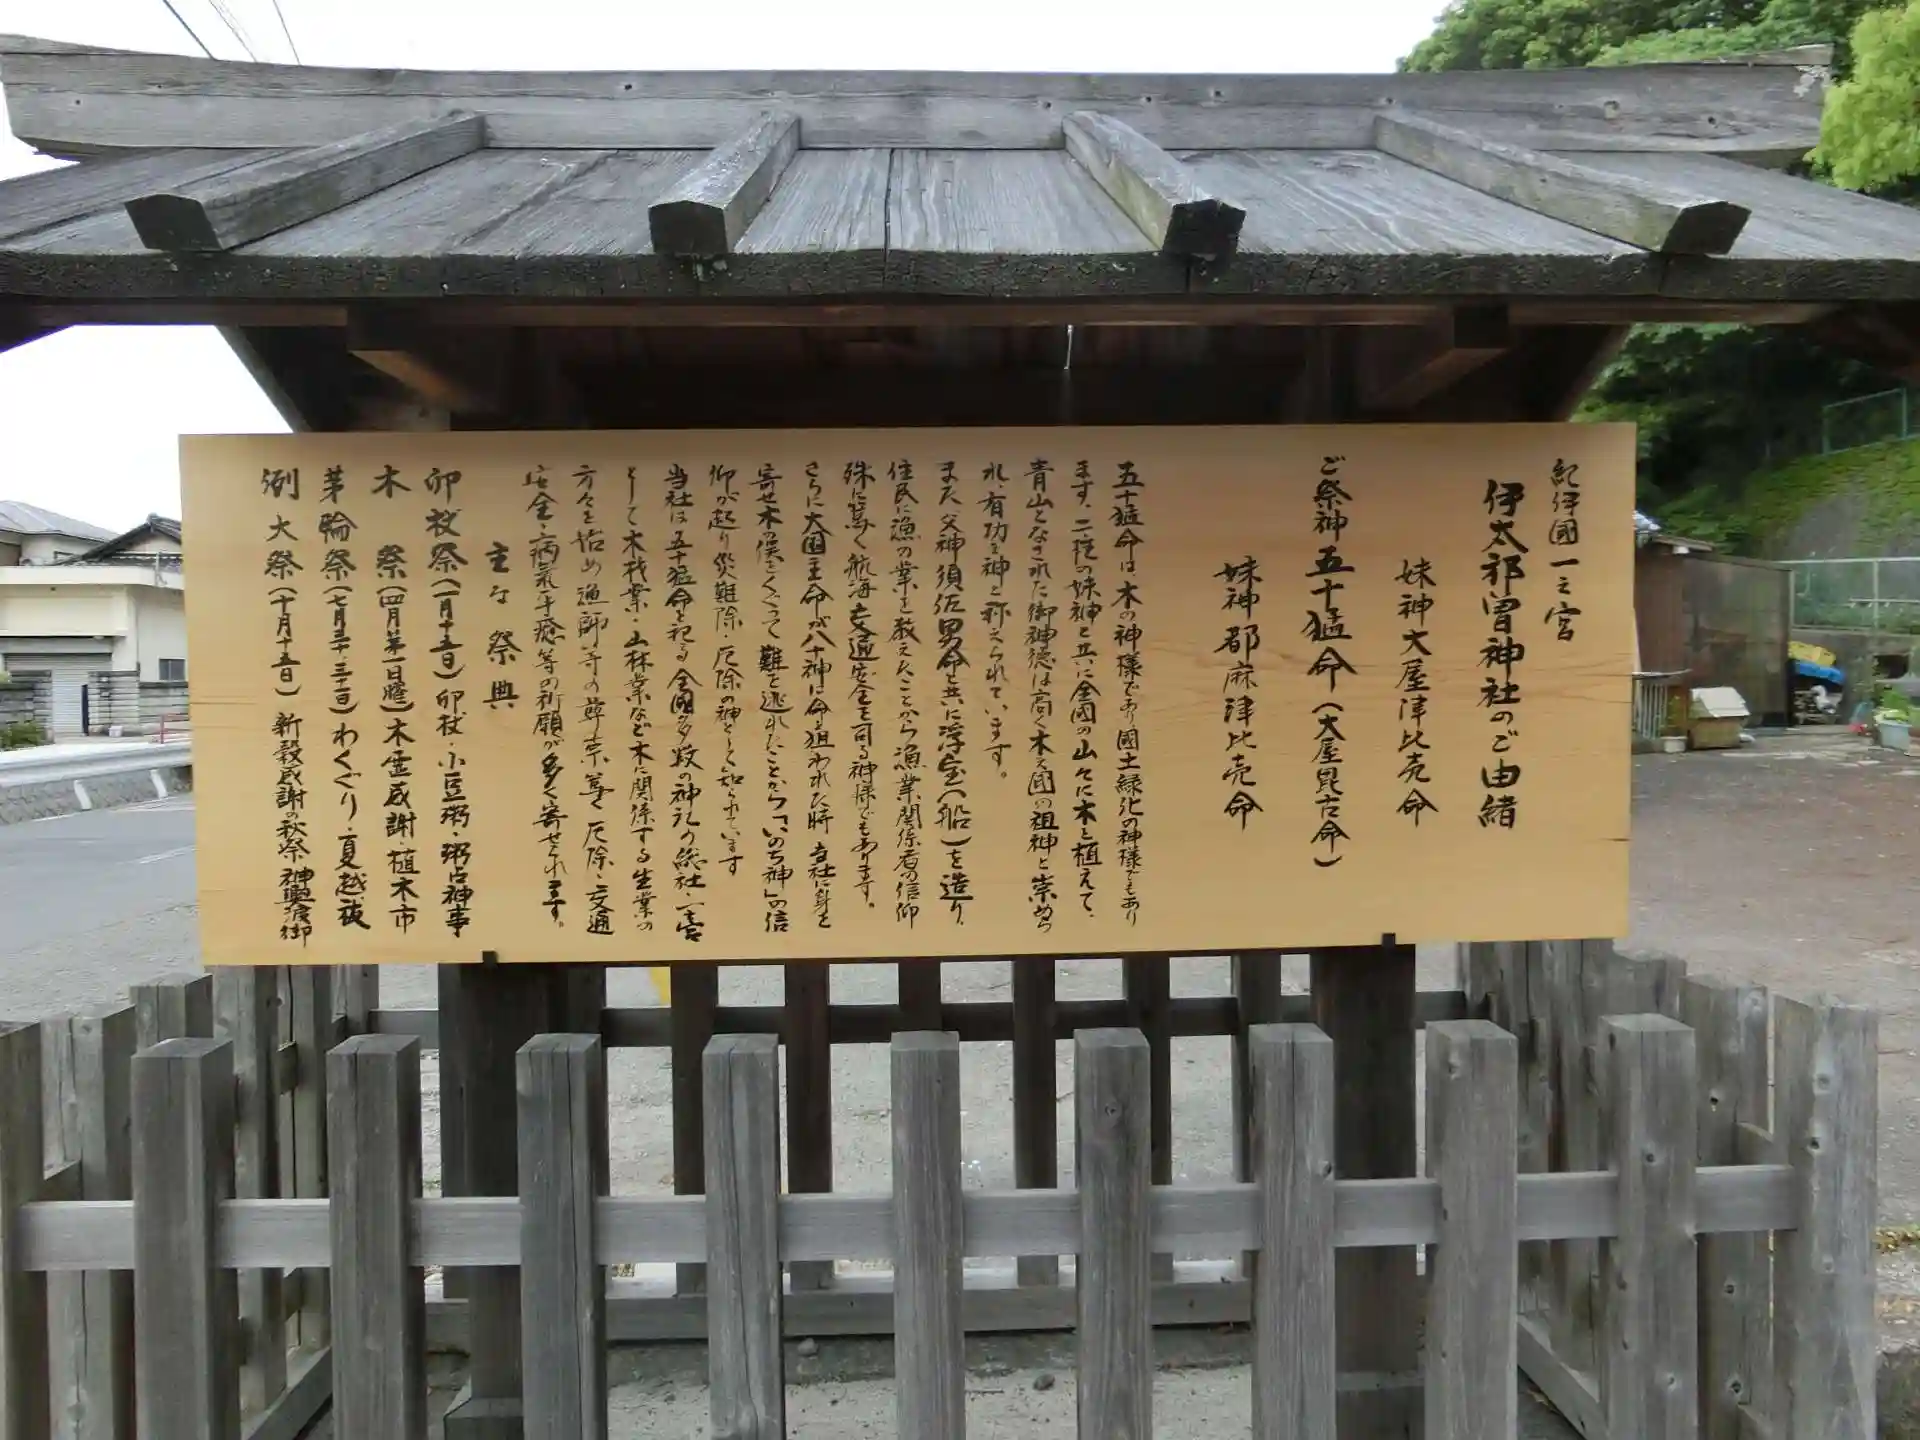 紀伊國一之宮
伊太祁曽神社のご由緒
妹神 大屋津比売命
ご祭神 五十猛命(大屋毘古命)
妹神 都麻津比売命
五十猛命は木の神様であり國土緑化の神様でもあり
ます。二柱の妹神と共に全国の山々に木を植えて、
青山となされた御神徳は高く木ノ國の祖神と崇めら
れ、有功を神と称えられています。
また父神須佐男命と共に浮宝(船)を造り、
住民に漁の業を教えたことから漁業関係者の信仰
殊に篤く航海交通安全を司る神様でもあります。
さらに大国主命が八十神に命を狙われた時 当社に身を
寄せ木の俣をくぐって難を逃れたことから「いのち神」の信
仰が起り災難除・厄除の神として知られています
当社は五十猛命を祀る全國多数の神社の総社・一宮
として木材業・山林業など木に関係する生業の
方々を始め漁師等の尊崇篤く厄除・交通
安全・病気平癒等の祈願が多く寄せられます。
主な祭典
卯杖祭(一月十五日)卯杖・小豆粥・粥占神事
木祭(四月第一日曜)木霊感謝・植木市
茅輪祭(七月三十・三十一日)わくぐり・夏越祓
例大祭(十月十五日)新穀感謝の秋祭 神輿渡御